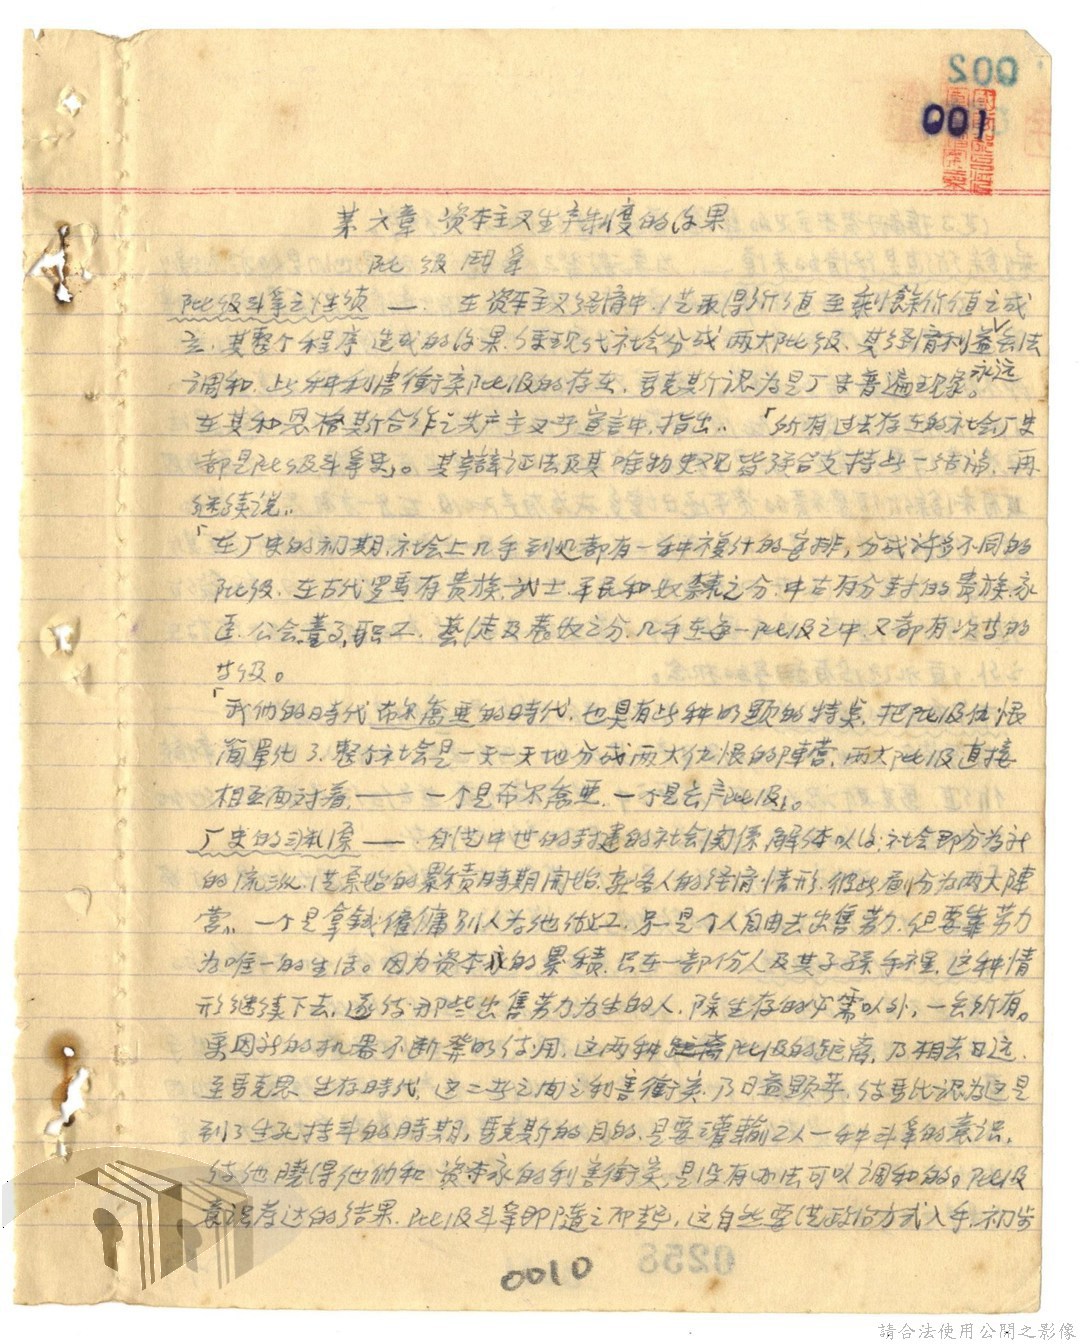 002
001
第六章 资本主义生产制度的后果
阶级鬥爭
阶级斗爭之性质 —— 在资本主义经濟中,從取得价值至剩餘价值之成
立,其整个程序造成的后果,使现代社会分成两大阶级,其经濟利益永远無法
调和,此种利害衝突阶级的存在,馬克斯认为是厂史普遍现象。
在其和恩格斯合作之共产主义宣言中,指出:「所有过去存在的社会厂史
都是阶级斗爭史」。其辯证法及其唯物史观皆强合支持此一结论,再
继续说:
「在厂史的初期,社会上几乎到处都有一种複什的安排,分成许多不同的
阶级,在古代罗馬有贵族、武士、平民和奴隸之分,中古有分封的贵族、家
臣、公会董事,职工、藝徒及農奴之分,几乎在每一阶级之中又都有次苛的
苛级。
「我们的时代布尔喬亚的時代,也具有此种明题的特点,把阶级仇恨
简單化了,整个社会是一天一天地分成两大仇恨的陣营,两大阶级直接
相互面对着,—— 一个是布尔喬亚,一个是无产阶级」。
厂史的溯源 —— 自從中世的封建的社会関係解体以后,社会即分为新
的流派,從原始的累積時期開始,按各人的经濟情形,彼此劃份为两大陣
营,一个是拿錢僱傭別人为他做工,另一是个人自由去出售劳力,但要靠劳力
为唯一的生活。因为资本的累積,只在一部份人及其子孫手裡,这种情
形继续下去,遂使那些出售劳力为生的人,除生存的必需以外,一无所有。
更因新的机器不断發明使用,这两种阶级的距离,乃相去日远,
至馬克思生存時代,这二者之间之利害衝突,乃日益顯著,使馬氏认为这是
到了生死持斗的時期,馬克斯的目的,是要灌輸工人一种斗爭的意识,
使他曉得他们和资本家的利害衝突,是没有办法可以调和的。阶级
意识發达的结果,阶级斗爭即随之而起,这自然要從政治方式入手,初步
0258
0010
請合法使用公開之影像